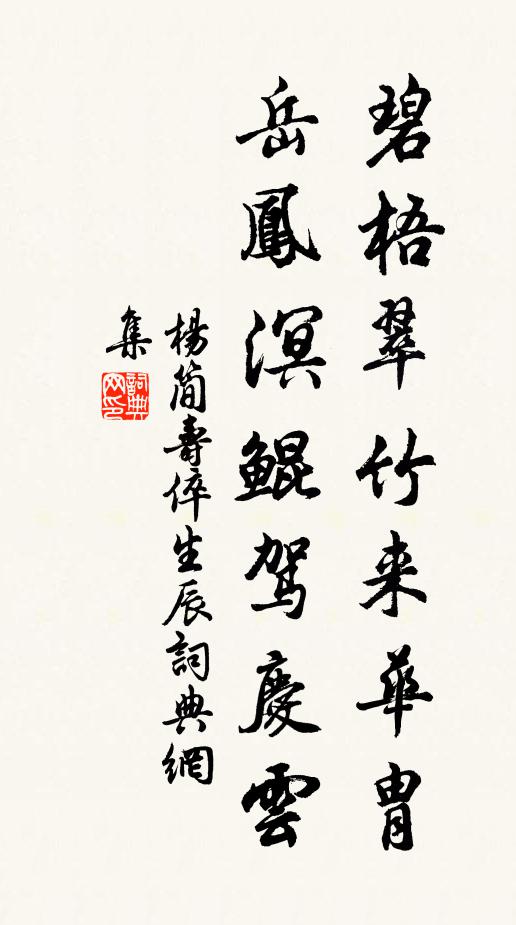 碧梧翠竹来華胄
岳鳳溟鯤駕慶雲
楊簡壽倅生辰詞典網
集
詞典網印